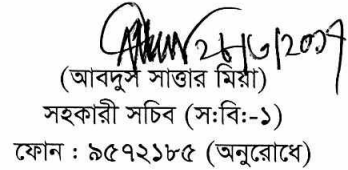 (আবদুস সাত্তার মিয়া)
সহকারী সচিব (স:বি:-১)
ফোন : ৯৫৭২১৮৫ (অনুরোধে)